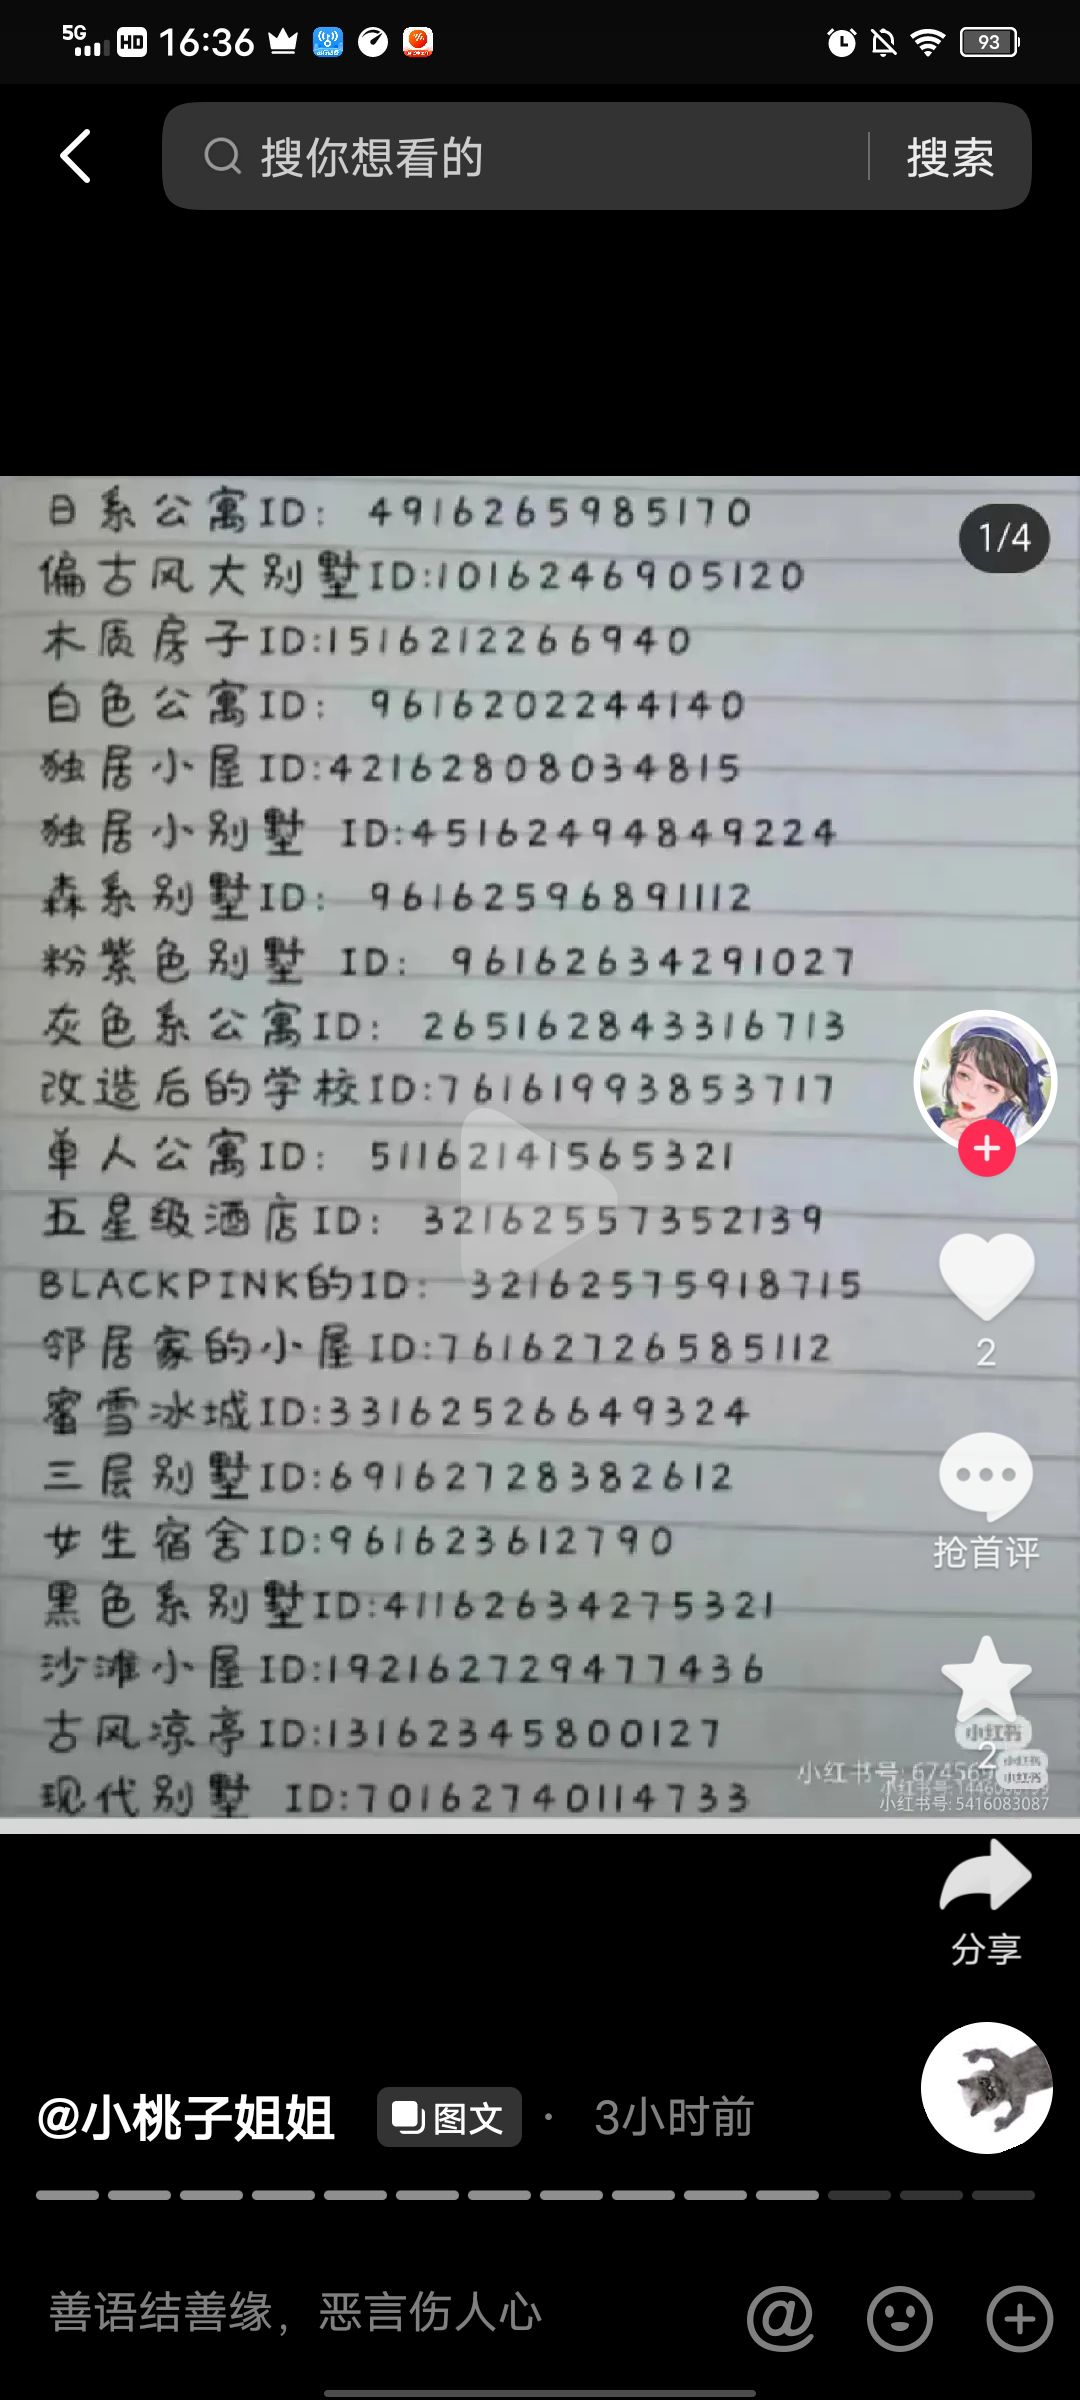 5G HD 16:36 93
搜你想看的 搜索
1/4
日系公寓ID: 4916265985170
偏古风大别墅ID:1016246905120
木质房子ID:1516212266940
白色公寓ID: 9616202244140
独居小屋ID:42162808034815
独居小别墅 ID:45162494849224
森系别墅ID: 96162596891112
粉紫色别墅 ID: 96162634291027
灰色系公寓ID: 265162843316713
改造后的学校ID:76161993853717
单人公寓ID: 51162141565321
五星级酒店ID: 32162557352139
BLACKPINK的ID: 32162575918715
邻居家的小屋ID:76162726585112
蜜雪冰城ID:33162526649324
三层别墅ID:69162728382612
女生宿舍ID:961623612790
黑色系别墅ID:41162634275321
沙滩小屋ID:192162729477436
古风凉亭ID:13162345800127
现代别墅 ID:70162740114733
2
抢首评
2
小红书
小红书
小红书
小红书号: 67456
小红书号: 5416083087
分享
@小桃子姐姐 图文 · 3小时前
善语结善缘，恶言伤人心